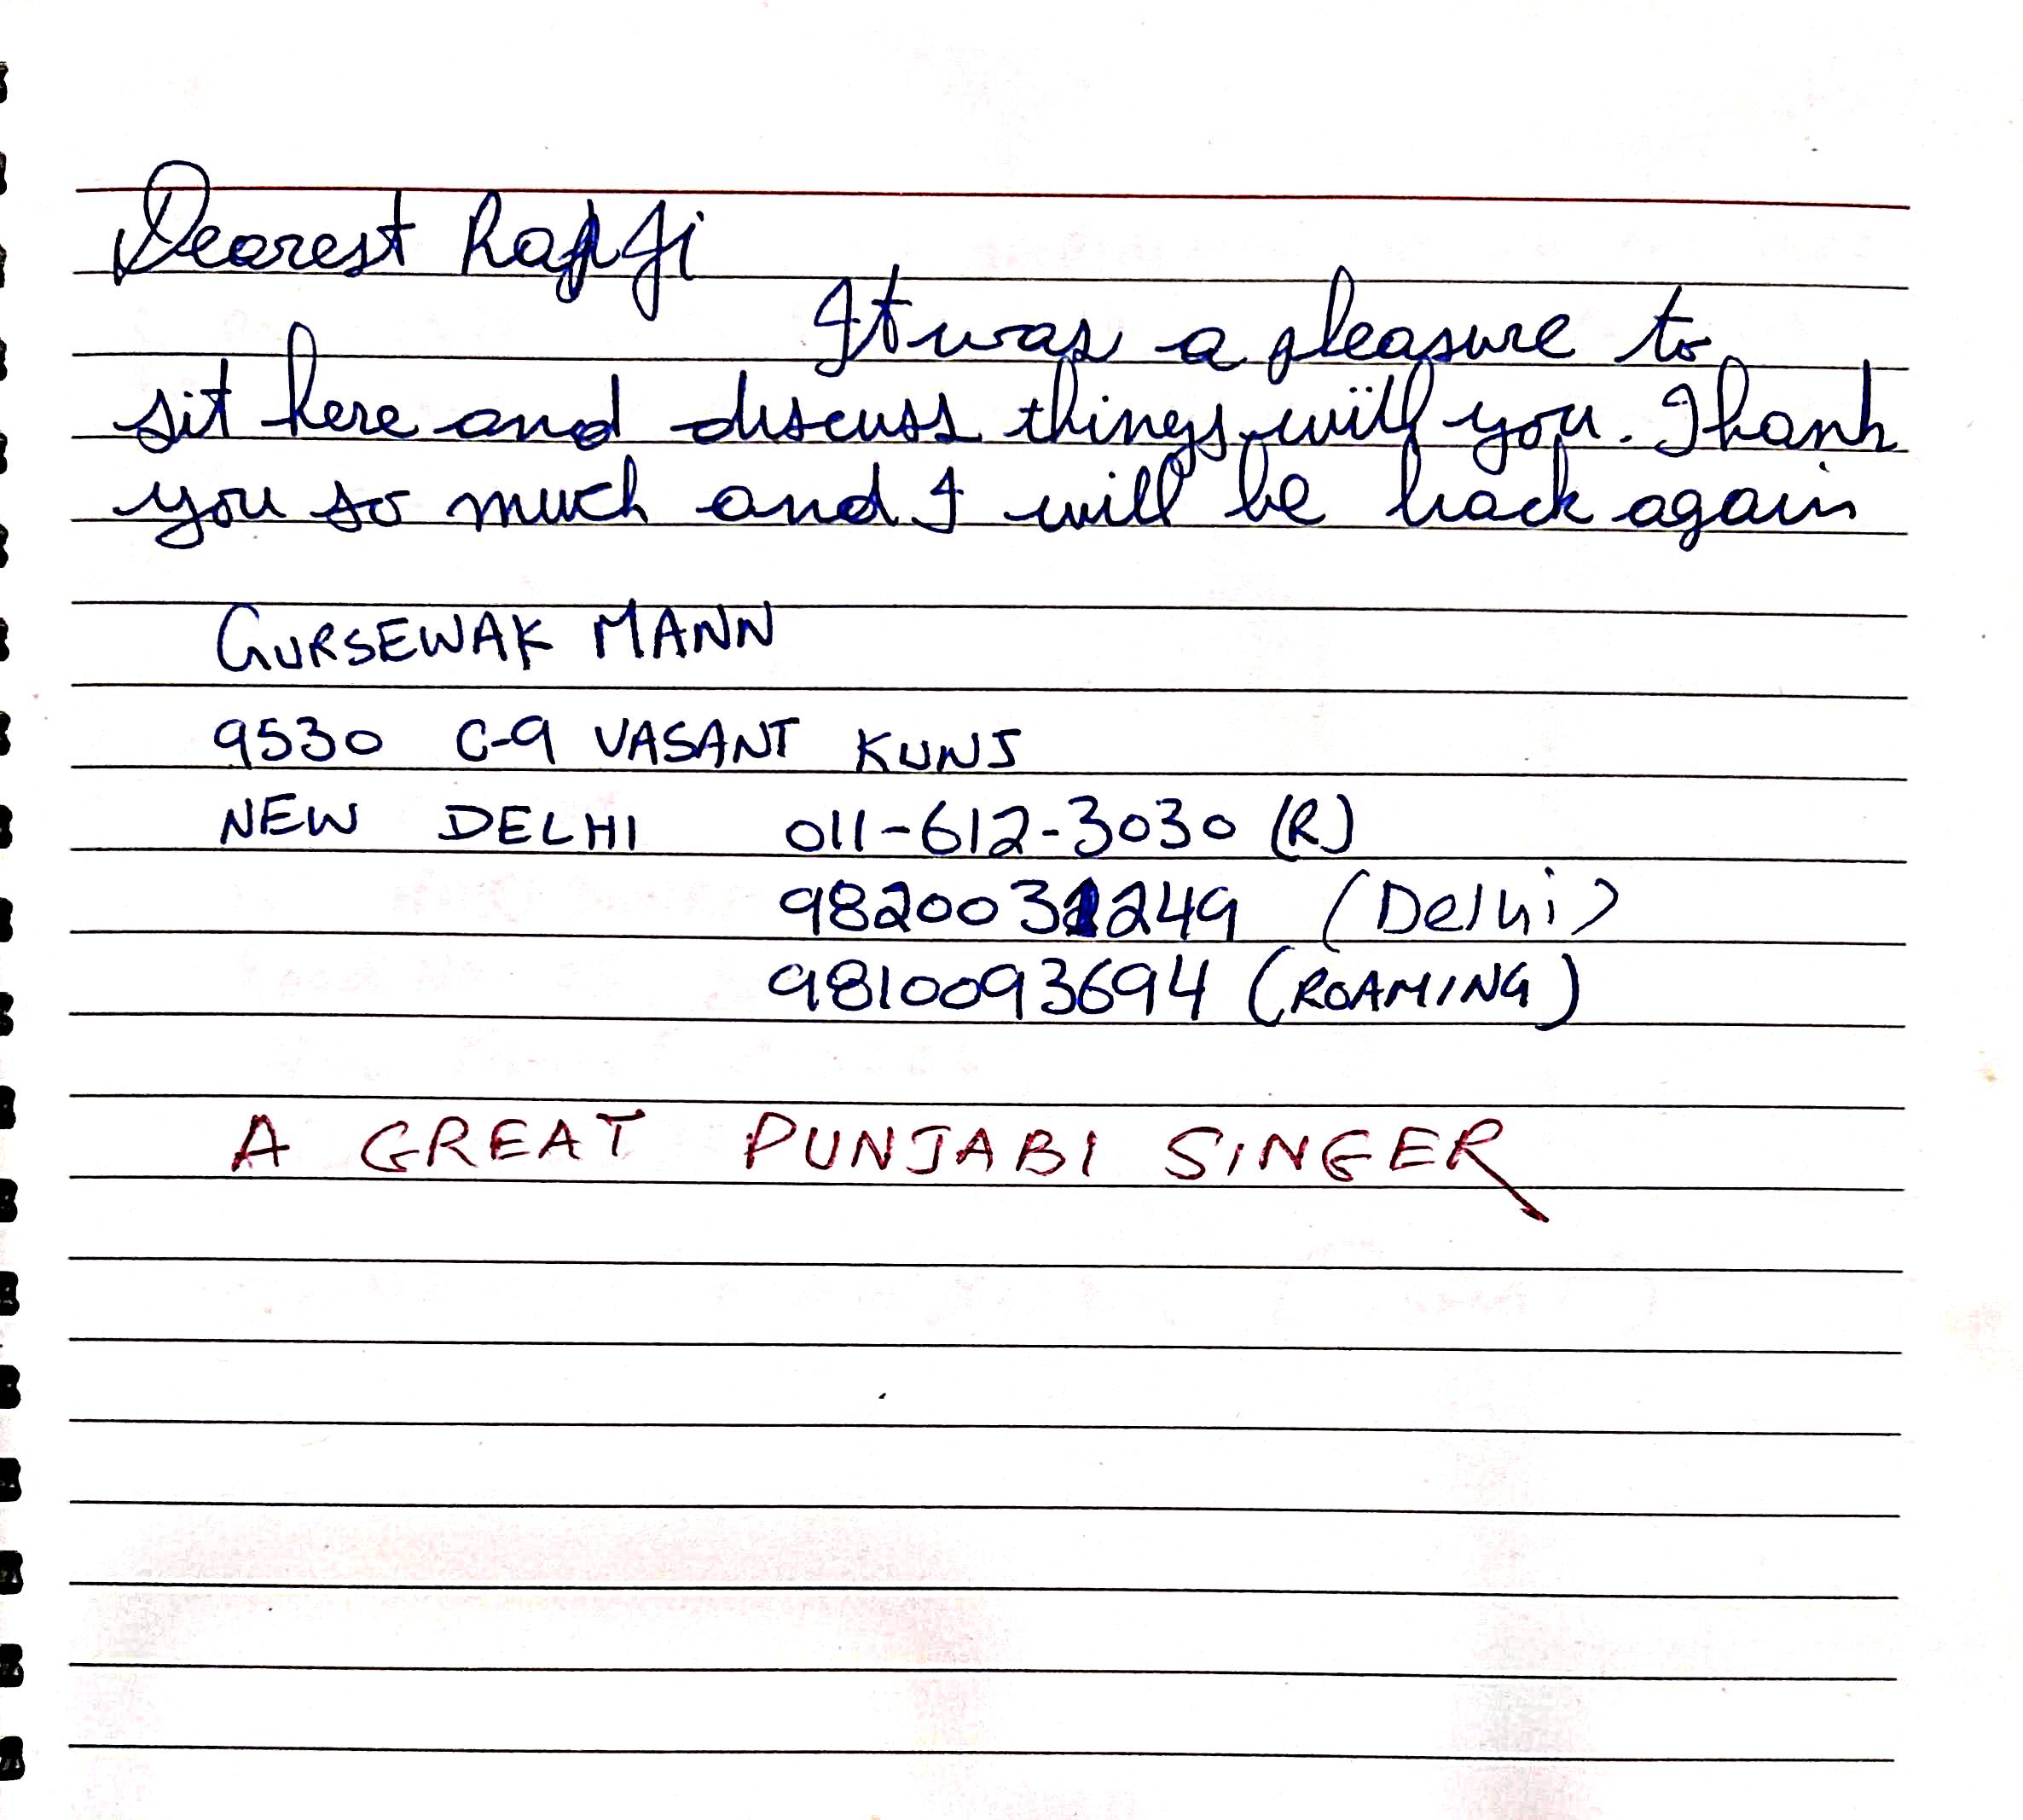 Dearest Rap Ji
It was a pleasure to
sit here and discuss things with you. Thank
you so much and I will be back again
GURSEWAK MANN
9530 C-9 VASANT KUNJ
NEW DELHI 011-612-3030 (R)
(Delhi)
9810093694 (ROAMING)
A GREAT PUNJABI SINGER